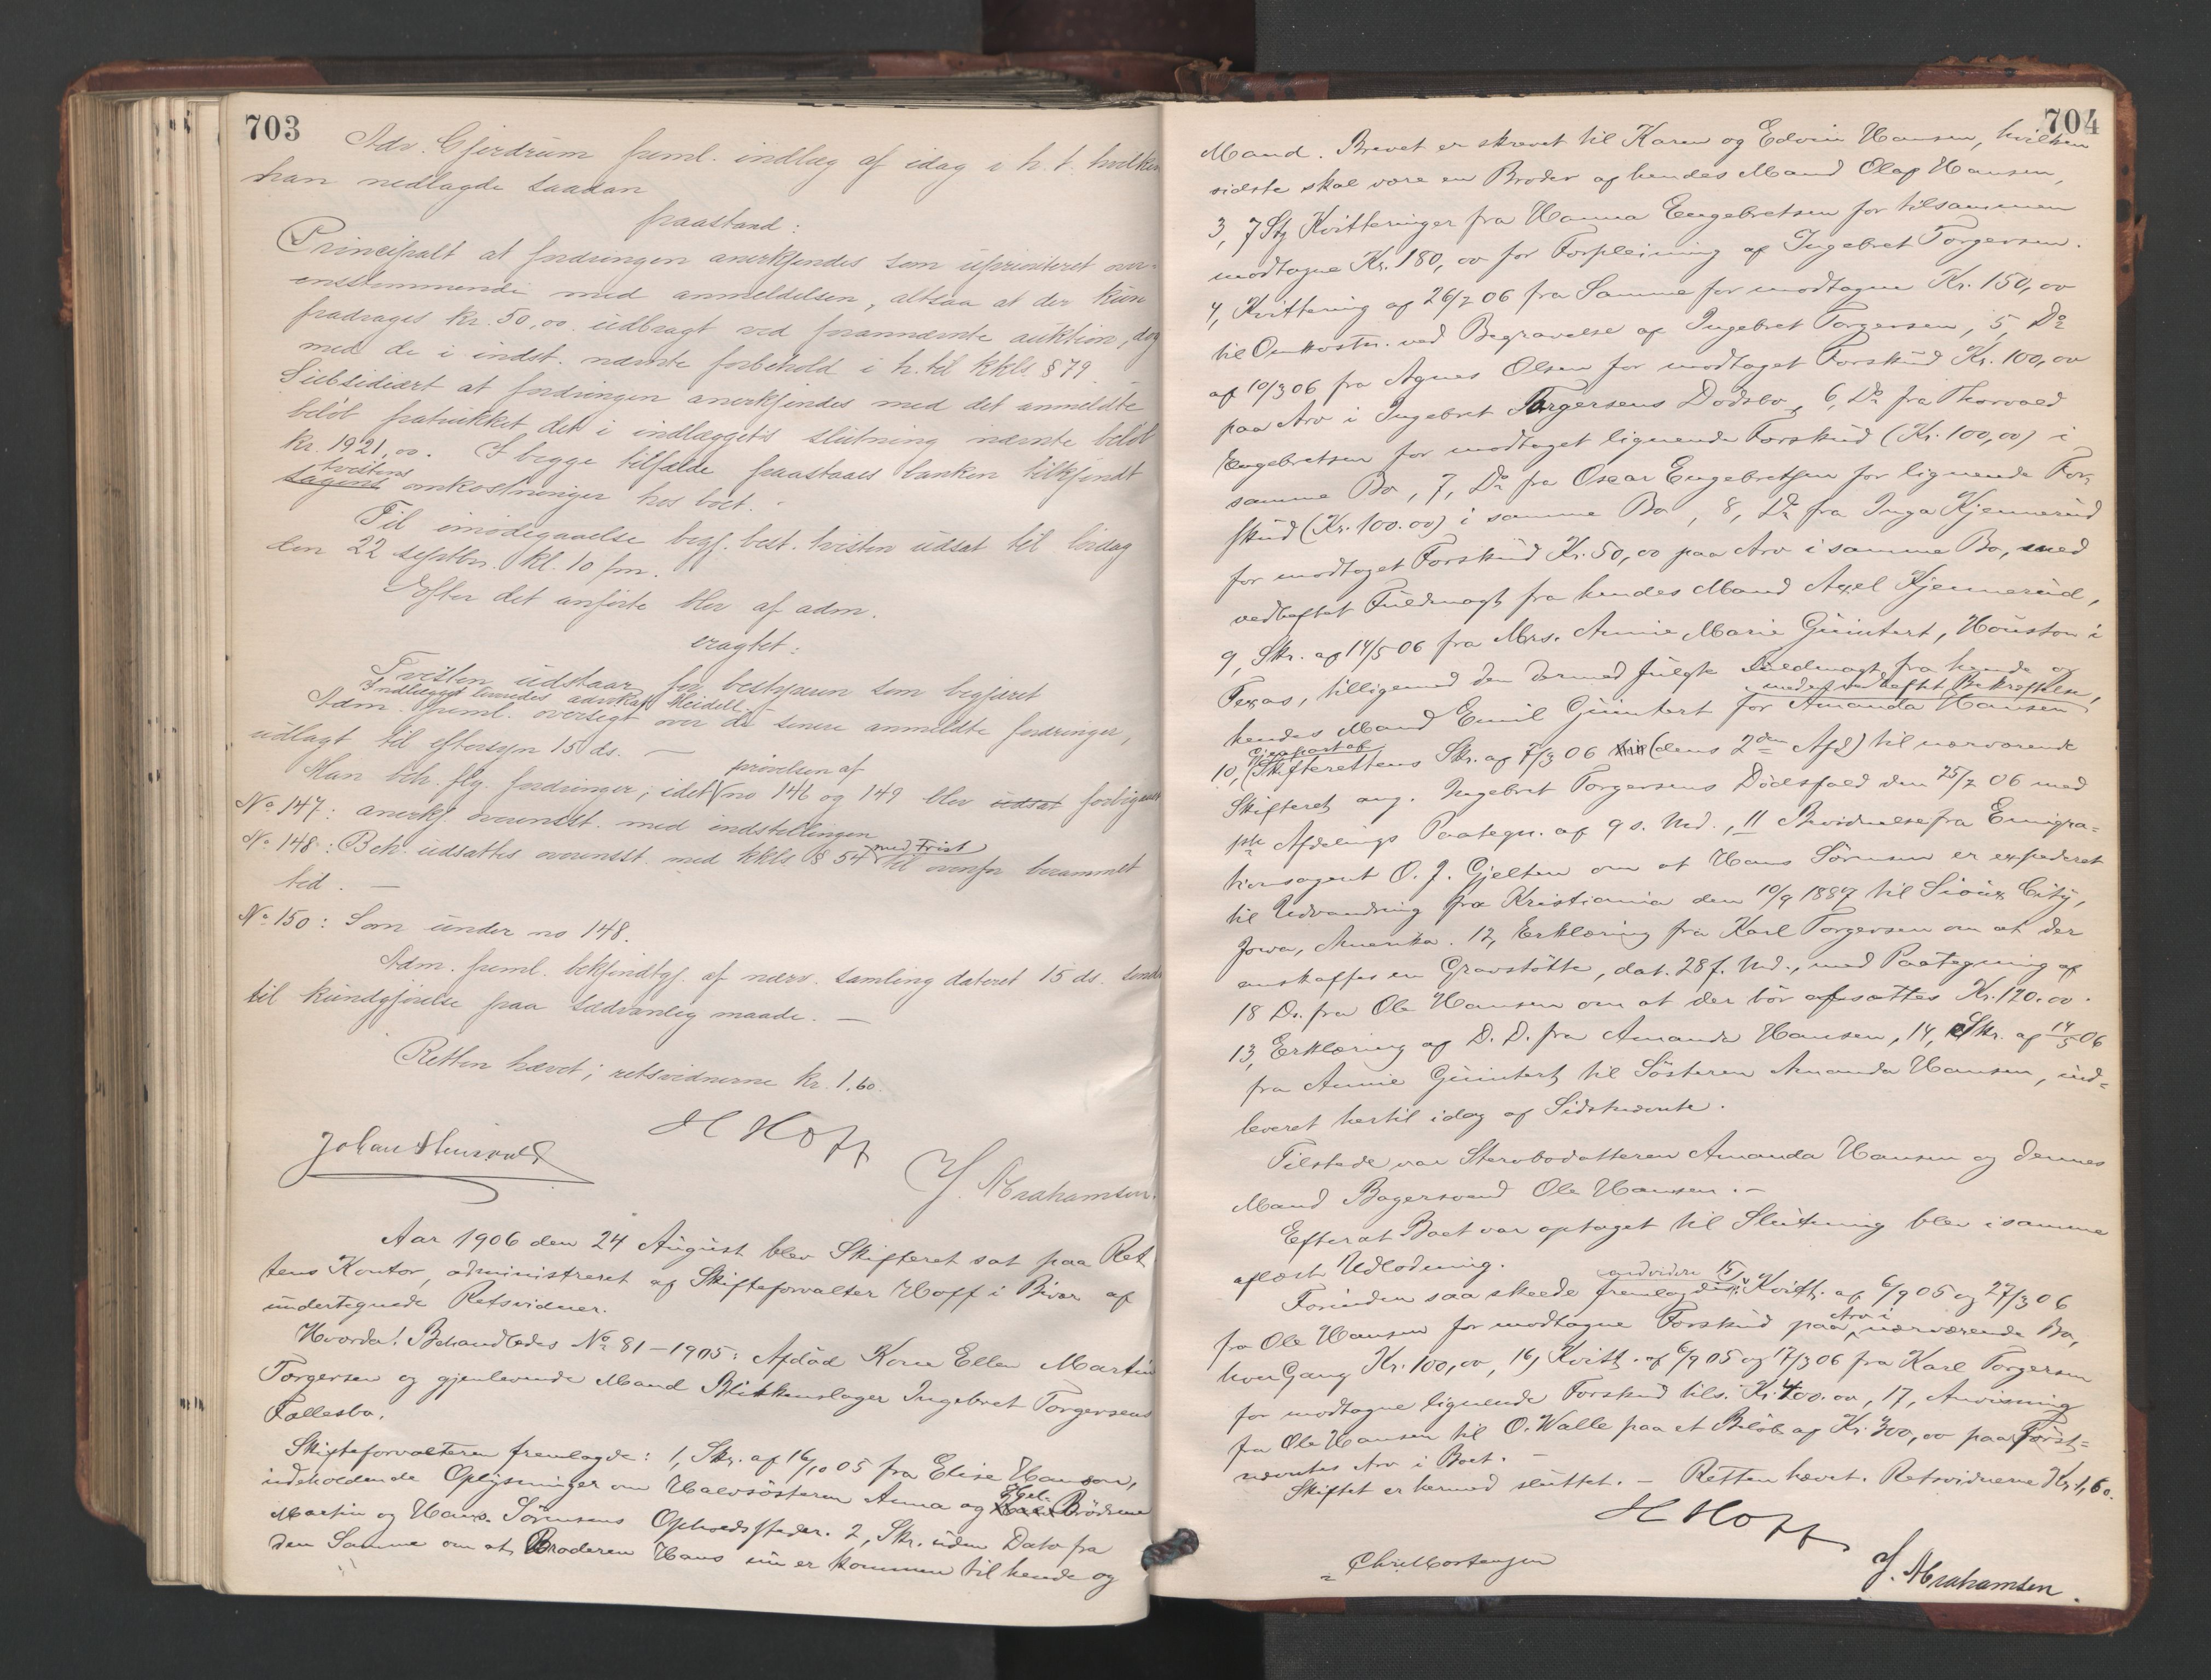 703
Adv. Gjerdrum freml. indlæg af idag i h. t. hvilken
han nedlagde saadan
paastand:
Principalt at fordringen anerkjendes som uprioriteret over-
ensstemmende med anmeldelsen, altsaa at der kun
fradrages kr. 50,00 udbragt ved forannævnte auktion, dog
med de i indst. nævnte forbehold i h. til kkls § 79.
Subsidiært at fordringen anerkjendes med det anmeldte
beløb fratrukket det i indlæggets slutning nævnte beløb
kr. 1921,00. I begge tilfælde paastaaes banken tilkjendt
tvistens
sagens omkostninger hos boet. -
Til imødegaaelse begj. best. tvisten udsat til lørdag
den 22 septbr. kl. 10 fm.
Efter det anførte blev af adm.
eragtet:
Tvisten udstaar for bestyreren som begjæret
Indlægget laanedes advokat Heidell.
Adm. freml. oversigt over de senere anmeldte fordringer,
udlagt til eftersyn 15 ds. —
Man beh. flg. fordringer; idet prøvelsen af no 146 og 149 blev udsat forbigaaet
No 147: anerkj. overensst. med indstillingen
No 148: Beh. udsattes overensst. med kkls § 54 med Frist til ovenfor berammet
tid. —
No 150: Som under no 148.
Adm. freml. bekjendtgj. af nærv. samling dateret 15 ds. sendt
til kundgjørelse paa sædvanlig maade. —
Retten hævet; retsvidnerne kr. 1.60.
H Hoff
J. Abrahamsen.
Aar 1906 den 24 August blev Skifteret sat paa Ret
tens Kontor, administreret af Skifteforvalter Hoff i Bivær af
undertegnede Retsvidner.
Hvorda! Behandledes No 81-1905: Afdød Kone Ellen Martine
Torgersen og gjenlevende Mand Blikkenslager Ingebret Torgersens
Fællesbo.
Skifteforvalteren fremlagde: 1, Skr. af 16/10 05 fra Elise Hanson,
indeholdende Oplysninger om Halvsøsteren Anna og Hel- Brødrene
Martin og Hans Sørensens Opholdssteder. 2, Skr. uden Dato fra
den Samme om at Broderen Hans nu er kommen til hende og
704
Mand. Brevet er skrevet til Karen og Edvin Hansen, hvilken
sidste skal være en Broder af hendes Mand Olaf Hansen,
3, 7 Stk Kvitteringer fra Hanna Engebretsen for tilsammen
modtagne Kr. 180,00 for Forpleining af Ingebret Torgersen.
4, Kvittering af 26/2 06 fra Samme for modtagne Kr. 150,00
til Omkostn. ved Begravelse af Ingebret Torgersen, 5, Do
af 10/3 06 fra Agnes Olsen for modtaget Forskud Kr. 100,00
paa Arv i Ingebret Torgersens Dødsbo, 6, Do fra Thorvald
Engebretsen for modtaget lignende Forskud (Kr. 100,00) i
samme Bo, 7, Do fra Oscar Engebretsen for lignende For-
skud (Kr. 100.00) i samme Bo, 8, Do fra Inga Kjennerud
for modtaget Forskud Kr. 50,00 paa Arv i samme Bo, med
vedheftet Fuldmagt fra hendes Mand Axel Kjennerud,
9, Skr. af 14/5 06 fra Mrs. Annie Marie Güintert, Houston i
Texas, tilligemed den dermed fulgte Fuldmagt fra hende og
hendes Mand Emil Güintert for Amanda Hansen med vedheftet Bekræftelse,
10, Gjenpart af Skifterettens Skr. af 7/3 06 (dens 2den Afd) til nærværende
Skifteret ang. Ingebret Torgersens Dødsfald den 25/2 06 med
1ste Afdelings Paategn. af 9 s. Md., 11 Bevidnelse fra Emigra-
tionsagent O. J. Gjelten om at Hans Sørensen er expederet
til Udvandring fra Kristiania den 10/9 1887 til Sioux City,
Jowa, Amerika. 12, Erklæring fra Karl Torgersen om at der
anskaffes en Gravstøtte, dat. 28 f. Md., med Paategning af
18 Ds. fra Ole Hansen om at der bør afsættes Kr. 120.00.
13, Erklæring af D. D. fra Amanda Hansen, 14, Skr. af 14/5 06
fra Annie Güintert til Søsteren Amanda Hansen, ind-
leveret hertil idag af Sidstnævnte.
Tilstede var Stervbodatteren Amanda Hansen og dennes
Mand Bagersvend Ole Hansen. -
Efterat Boet var optaget til Slutning blev i samme
aflæst Udlodning.
Forinden saa skeede fremlagdes endvidere 15, Kvitt. af 6/9 05 og 27/3 06
fra Ole Hansen for modtagne Forskud paa Arv i nærværende Bo,
hver Gang Kr. 100,00, 16, Kvitt. af 6/9 05 og 17/3 06 fra Karl Torgersen
for modtagne lignende Forskud tils. Kr. 400.00, 17, Anvisning
fra Ole Hansen til O. Walle paa et Beløb af Kr. 300,00 paa Først-
nævntes Arv i Boet. -
Skiftet er hermed sluttet. - Retten hævet. Retsvidnerne Kr. 1,60.
H Hoff
Chr. Mortensen
J. Abrahamsen.